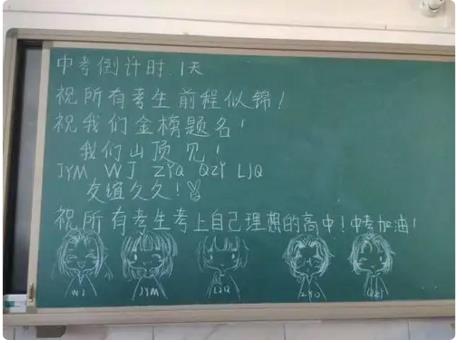 中考倒计时 1天
祝所有考生前程似锦!
祝我们金榜题名!
我们山顶见!
JYM WJ ZYQ QZY LJQ
友谊久久!
祝所有考生考上自己理想的高中!中考加油!
WJ JYM LJQ ZYQ QZY